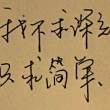 我不求深刻
只求简单